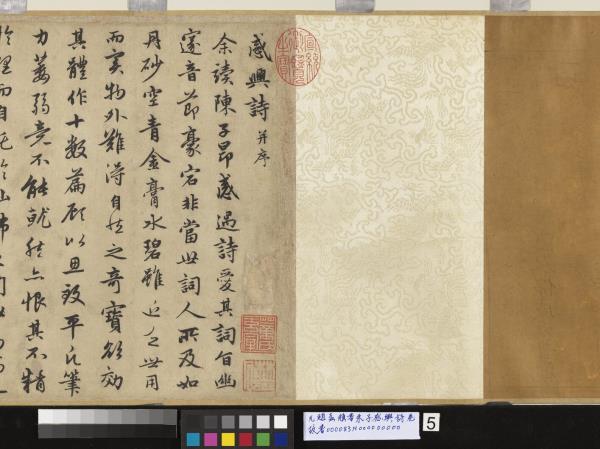 感興詩并序
余讀陳子昂感遇詩愛其詞旨幽
邃音節豪宕非當世詞人所及如
丹砂空青金膏水碧雖近乏世用
而實物外難得自然之奇寶欲效
其體作十數篇顧以思致平凡筆
力萎弱竟不能就然亦恨其不精
於理而自託於仙佛之間
元趙孟頫書朱子感興詩卷
故書000083N000000000
5